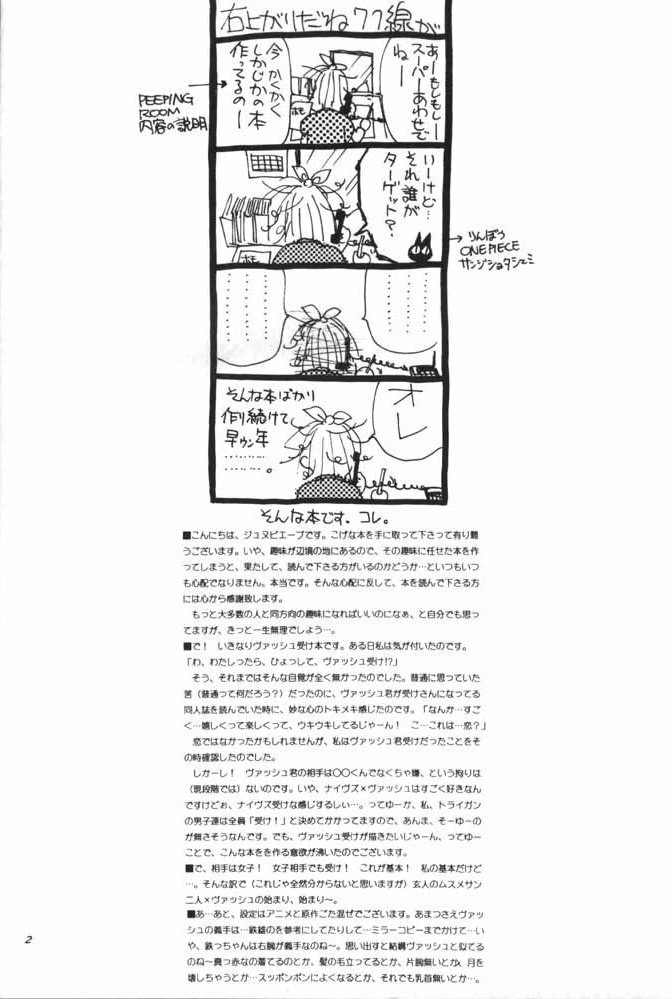 右上がりだね77線が
あーもしもしー
スーパーしあわせで
ねー
今 かくかく
しかじかの本
作ってるのー
PEEPING
ROOM
内容の説明
いーけど…
それ誰が
ターゲット?
りんぼう
ONE PIECE
サンジショタシュミ
オレ
そんな本ばかり
作り続けて
早ウン年
…………。
そんな本です、コレ。
■こんにちは、ジュヌビエーブです。こげな本を手に取って下さって有り難
うございます。いや、趣味が辺境の地にあるので、その趣味に任せた本を作
ってしまうと、果たして、読んで下さる方がいるのかどうか…といつもいつ
も心配でなりません。本当です。そんな心配に反して、本を読んで下さる方
には心から感謝致します。
もっと大多数の人と同方向の趣味になればいいのになぁ、と自分でも思っ
てますが、きっと一生無理でしょう…。
■で! いきなりヴァッシュ受け本です。ある日私は気が付いたのです。
「わ、わたしったら、ひょっして、ヴァッシュ受け!?」
そう、それまではそんな自覚が全く無かったのでした。普通に思っていた
筈(普通って何だろう?)だったのに、ヴァッシュ君が受けさんになってる
同人誌を読んでいた時に、妙な心のトキメキ感じたのです。「なんか…すご
く…嬉しくって楽しくって、ウキウキしてるじゃーん! こ…これは…恋?」
恋ではなかったかもしれませんが、私はヴァッシュ君受けだったことをそ
の時確認したのでした。
しかーし! ヴァッシュ君の相手は〇〇くんでなくちゃ嫌、という拘りは
(現段階では)ないのです。いや、ナイヴズ×ヴァッシュはすごく好きなん
ですけどぉ、ナイヴズ受けな感じするしぃ…。ってゆーか、私、トライガン
の男子達は全員「受け!」と決めてかかってますので、あんま、そーゆーの
が無さそうなんです。でも、ヴァッシュ受けが描きたいじゃーん、ってゆー
ことで、こんな本をを作る意欲が沸いたのでございます。
■で、相手は女子! 女子相手でも受け! これが基本! 私の基本だけど
…。そんな訳で(これじゃ全然分からないと思いますが)玄人のムスメサン
二人×ヴァッシュの始まり、始まり〜。
■あ…あと、設定はアニメと原作ごた混ぜでございます。あまつさえヴァッ
シュの義手は…鉄雄のを参考にしてたりして…ミラーコピーまでかけて…い
や、鉄っちゃんは右腕が義手なのね〜。思い出すと結構ヴァッシュと似てる
のね〜真っ赤なの着てるのとか、髪の毛立ってるとか、片腕無いとか、月を
壊しちゃうとか…スッポンポンによくなるとか、それでも乳首無いとか…。
2